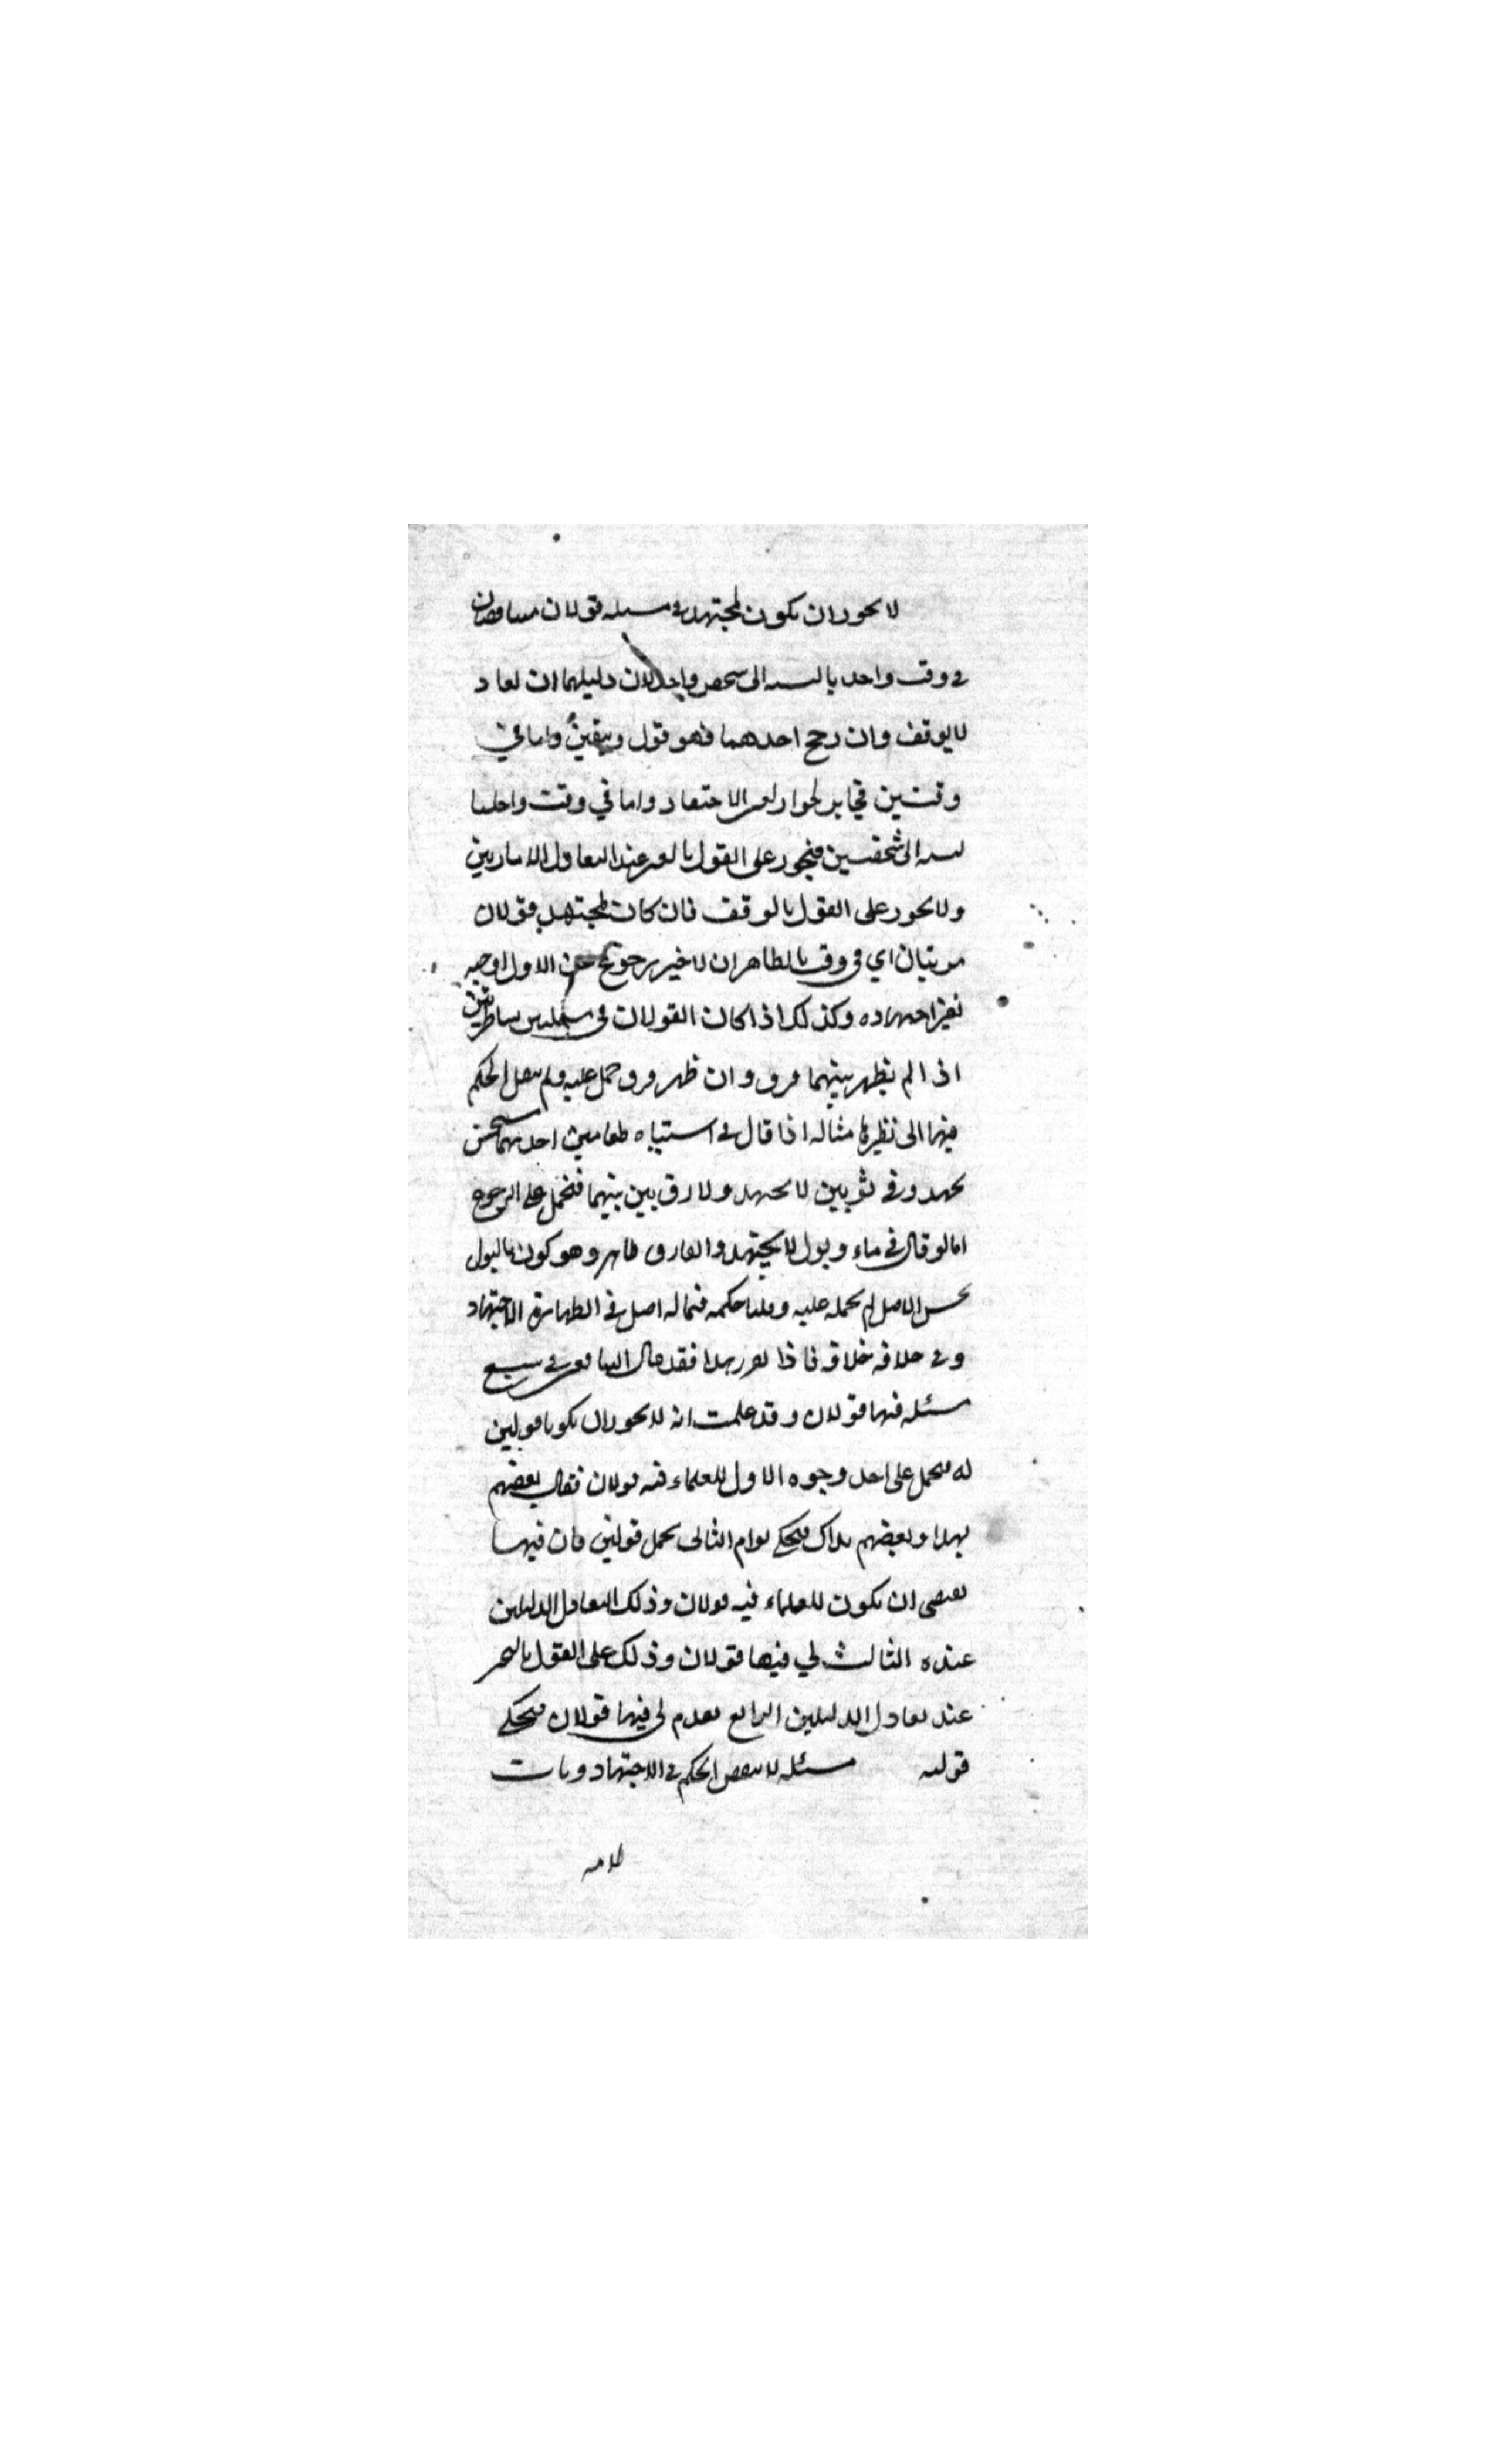 لا يجوز ان يكون لمجتهد في مسئله قولان متناقضان
في وقت واحد بالنسبه الى شخص واحد لان دليلهما ان تعاد
لا يوقف وان رجح احدهما فهو قول ويتعين واما في
وقتين فجايز لجواز تغير الاجتهاد واما في وقت واحد با
لنسبه الى شخصين فيجوز على القول بالتخيير عند التعادل الامارتين
ولا يجوز على القول بالوقف فان كان لمجتهد قولان
مرتبان اي في وقت فالظاهر ان الاخير رجوع عن الاول اوجبه
تغير اجتهاده وكذلك اذا كان القولان في مسئلتين متناظرتين
اذا لم يظهر بينهما فرق وان ظهر فرق حمل عليه ولم ينقل الحكم
فيها الى نظيرها مثاله اذا قال في اشتباه طعامين احدهما نجس
يجتهد وفي ثوبين لا يجتهد ولا رق بين بينهما فنحمل على الرجوع
اما لو قال في ماء وبول لا يجتهد والفارق ظاهر وهو كون البول
نجس الاصل لم نحمله عليه وقلنا حكمه فيما له اصل في الطهارة الاجتهاد
وفي خلافه خلافه فاذا تقرر هذا فقد قال الشافعي في سبع
مسئله فيها قولان وقد علمت انه لا يجوز ان يكونا قولين
له فيحمل على احد وجوه الاول للعلماء فيه قولان فقال بعضهم
بهذا وبعضهم بذاك فيحكي قولهم الثاني يحتمل قولين فان فيها
يقتضي ان يكون للعلماء فيه قولان وذلك لتعادل الدليلين
عنده الثالث لي فيها قولان وذلك على القول بالتخيير
عند تعادل الدليلين الرابع تقدم لي فيها قولان فيحكي
قوليه مسئله لا ينقض الحكم في الاجتهاديات